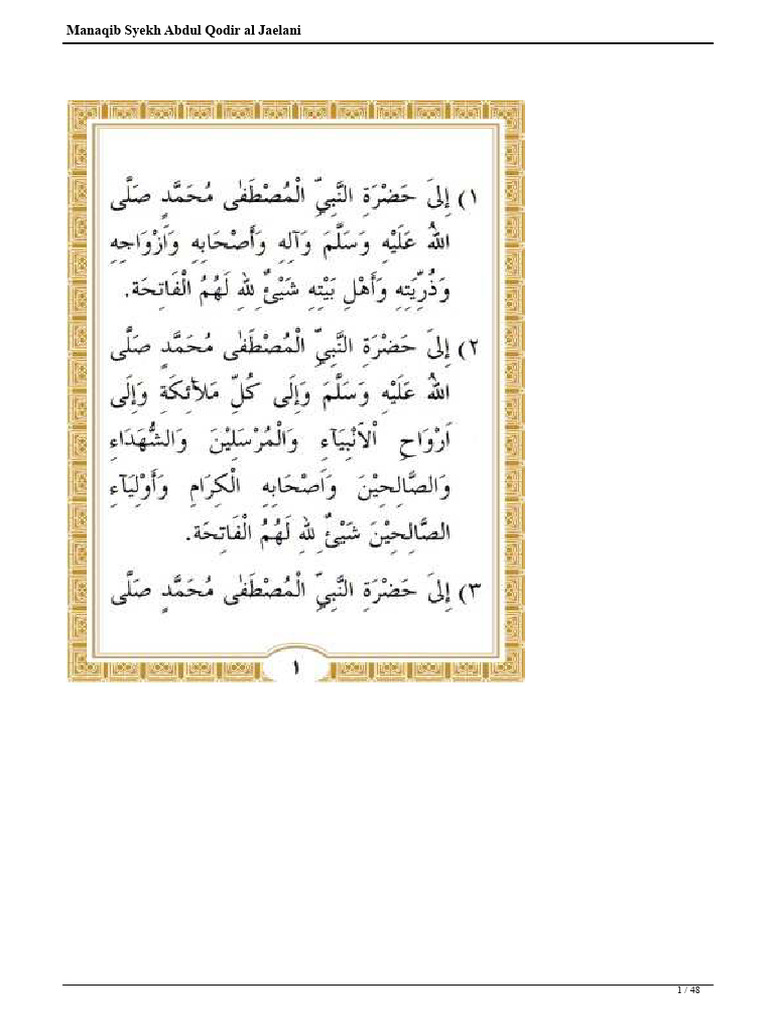 Manaqib Syekh Abdul Qodir al Jaelani
١) إِلَى حَضْرَةِ النَّبِيِّ الْمُصْطَفٰى مُحَمَّدٍ صَلَّى
اللهُ عَلَيْهِ وَسَلَّمَ وَآلِهِ وَأَصْحَابِهِ وَاَزْوَاجِهِ
وَذُرِّيَتِهِ وَأَهْلِ بَيْتِهِ شَيْئٌ لِلهِ لَهُمُ الْفَاتِحَة.
٢) إِلَى حَضْرَةِ النَّبِيِّ الْمُصْطَفٰى مُحَمَّدٍ صَلَّى
اللهُ عَلَيْهِ وَسَلَّمَ وَإِلَى كُلِّ مَلَآئِكَةِ وَإِلَى
اَرْوَاحِ اْلاَنْبِيَآءِ وَالْمُرْسَلِيْنَ وَالشُّهَدَاءِ
وَالصَّالِحِيْنَ وَاَصْحَابِهِ الْكِرَامِ وَأَوْلِيَآءِ
الصَّالِحِيْنَ شَيْئٌ لِلهِ لَهُمُ الْفَاتِحَة.
٣) إِلَى حَضْرَةِ النَّبِيِّ الْمُصْطَفٰى مُحَمَّدٍ صَلَّى
١
1 / 48